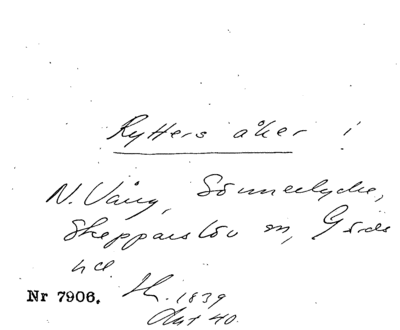 Rytters åker i
N. Vång, Sönnerlycke,
Skepparslöv sn, Gärds
hd
Nr 7906. Sk. 1839
Akt 40.